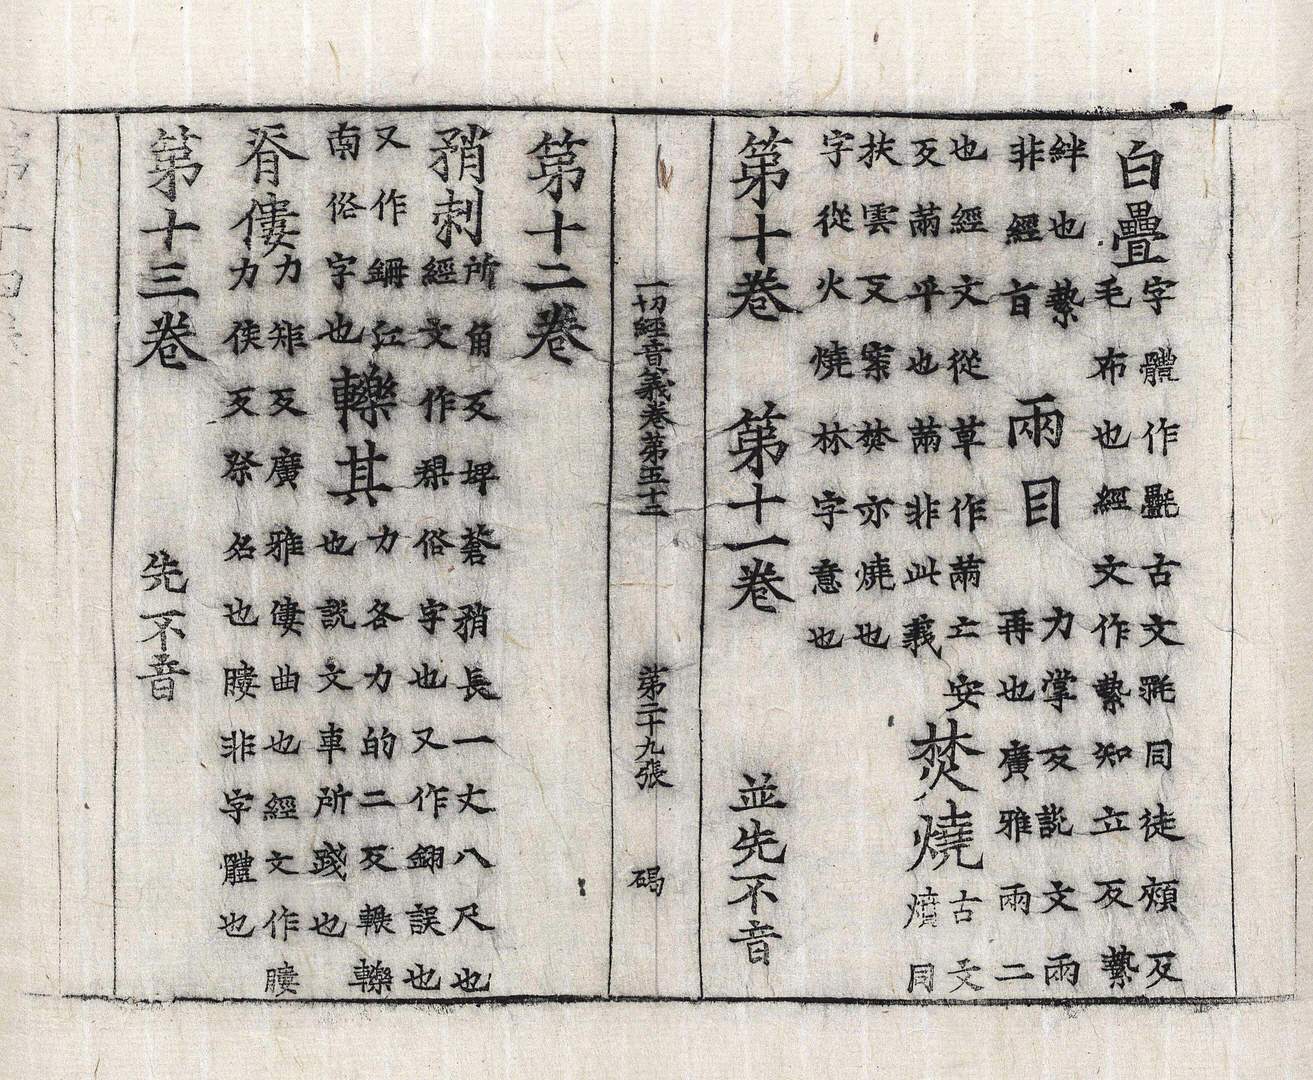 白疊
字體作氎古文㲲同徒頰反
毛布也經文作縶知立反縶
絆也縶
非經旨
兩目
力掌反説文兩
再也廣雅兩二
也經文從草作䓣亡安
反䓣平也䓣非此義
焚燒
古文
燌同
扶雲反案焚亦燒也
字從火燒林字意也
第十卷 第十一卷 並先不音
一切經音義卷第五十二 第二十九張 碣
第十二卷
矟刺
所角反埤蒼矟長一丈八尺也
經文作槊俗字也又作誤也
又作江
南俗字也
轢其
力各力的二反輾轢
也説文車所踐也
脊僂
力矩反廣雅僂曲也經文作膢
力侯反祭名也膢非字體也
第十三卷 先不音